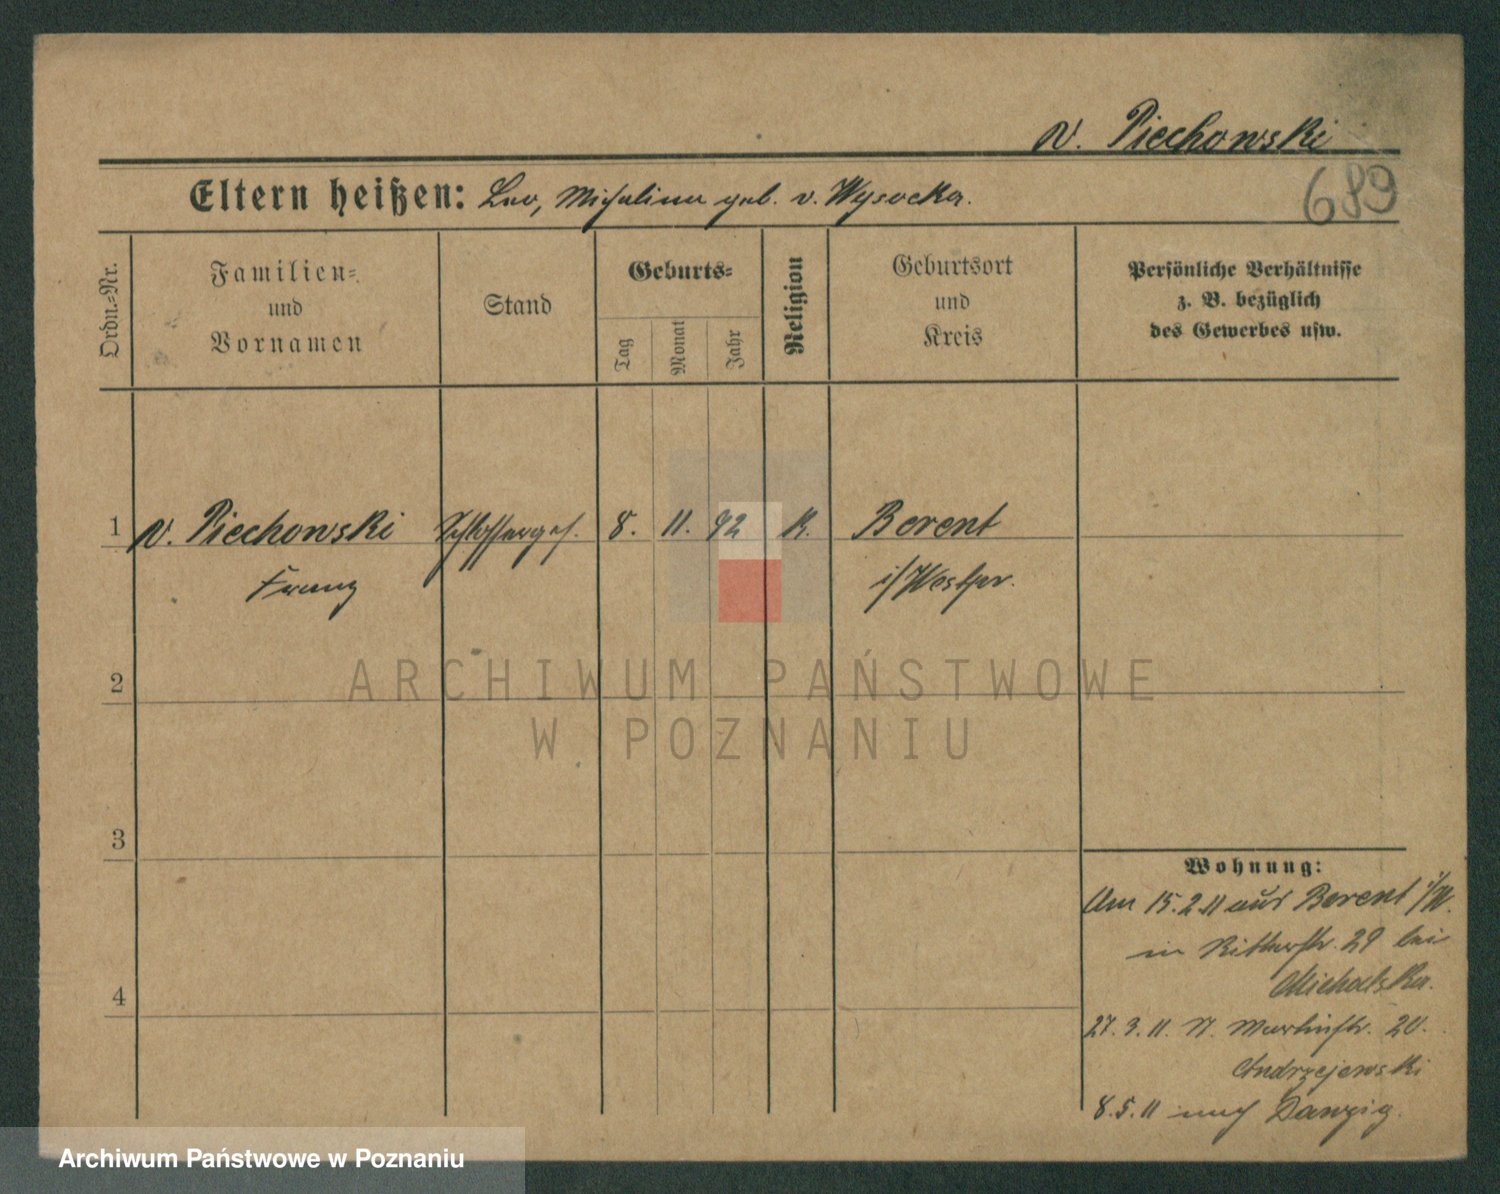 v. Piechowski
689
Eltern heißen: Leo, Michalina geb. v. Wysocka.
Ordn.-Nr.
Familien-
und
Vornamen
Stand
Geburts-
Tag
Monat
Jahr
Religion
Geburtsort
und
Kreis
Persönliche Verhältnisse
z. B. bezüglich
des Gewerbes usw.
1 v. Piechowski Schlosserges. 8. 11. 92 K. Berent
Franz i/Westpr.
2
3
4
Wohnung:
Am 15.2.11 aus Berent i/W.
in Ritterstr. 29 bei
Michalska.
27.3.11. N. Martinstr. 20.
Andrzejewski
8.5.11 nach Danzig.
ARCHIWUM PAŃSTWOWE
W POZNANIU
Archiwum Państwowe w Poznaniu